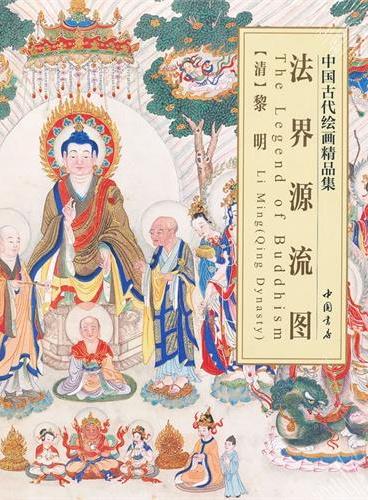 中国古代绘画精品集
法界源流图
The Legend of Buddhism
【清】黎明
Li Ming(Qing Dynasty)
中国书店